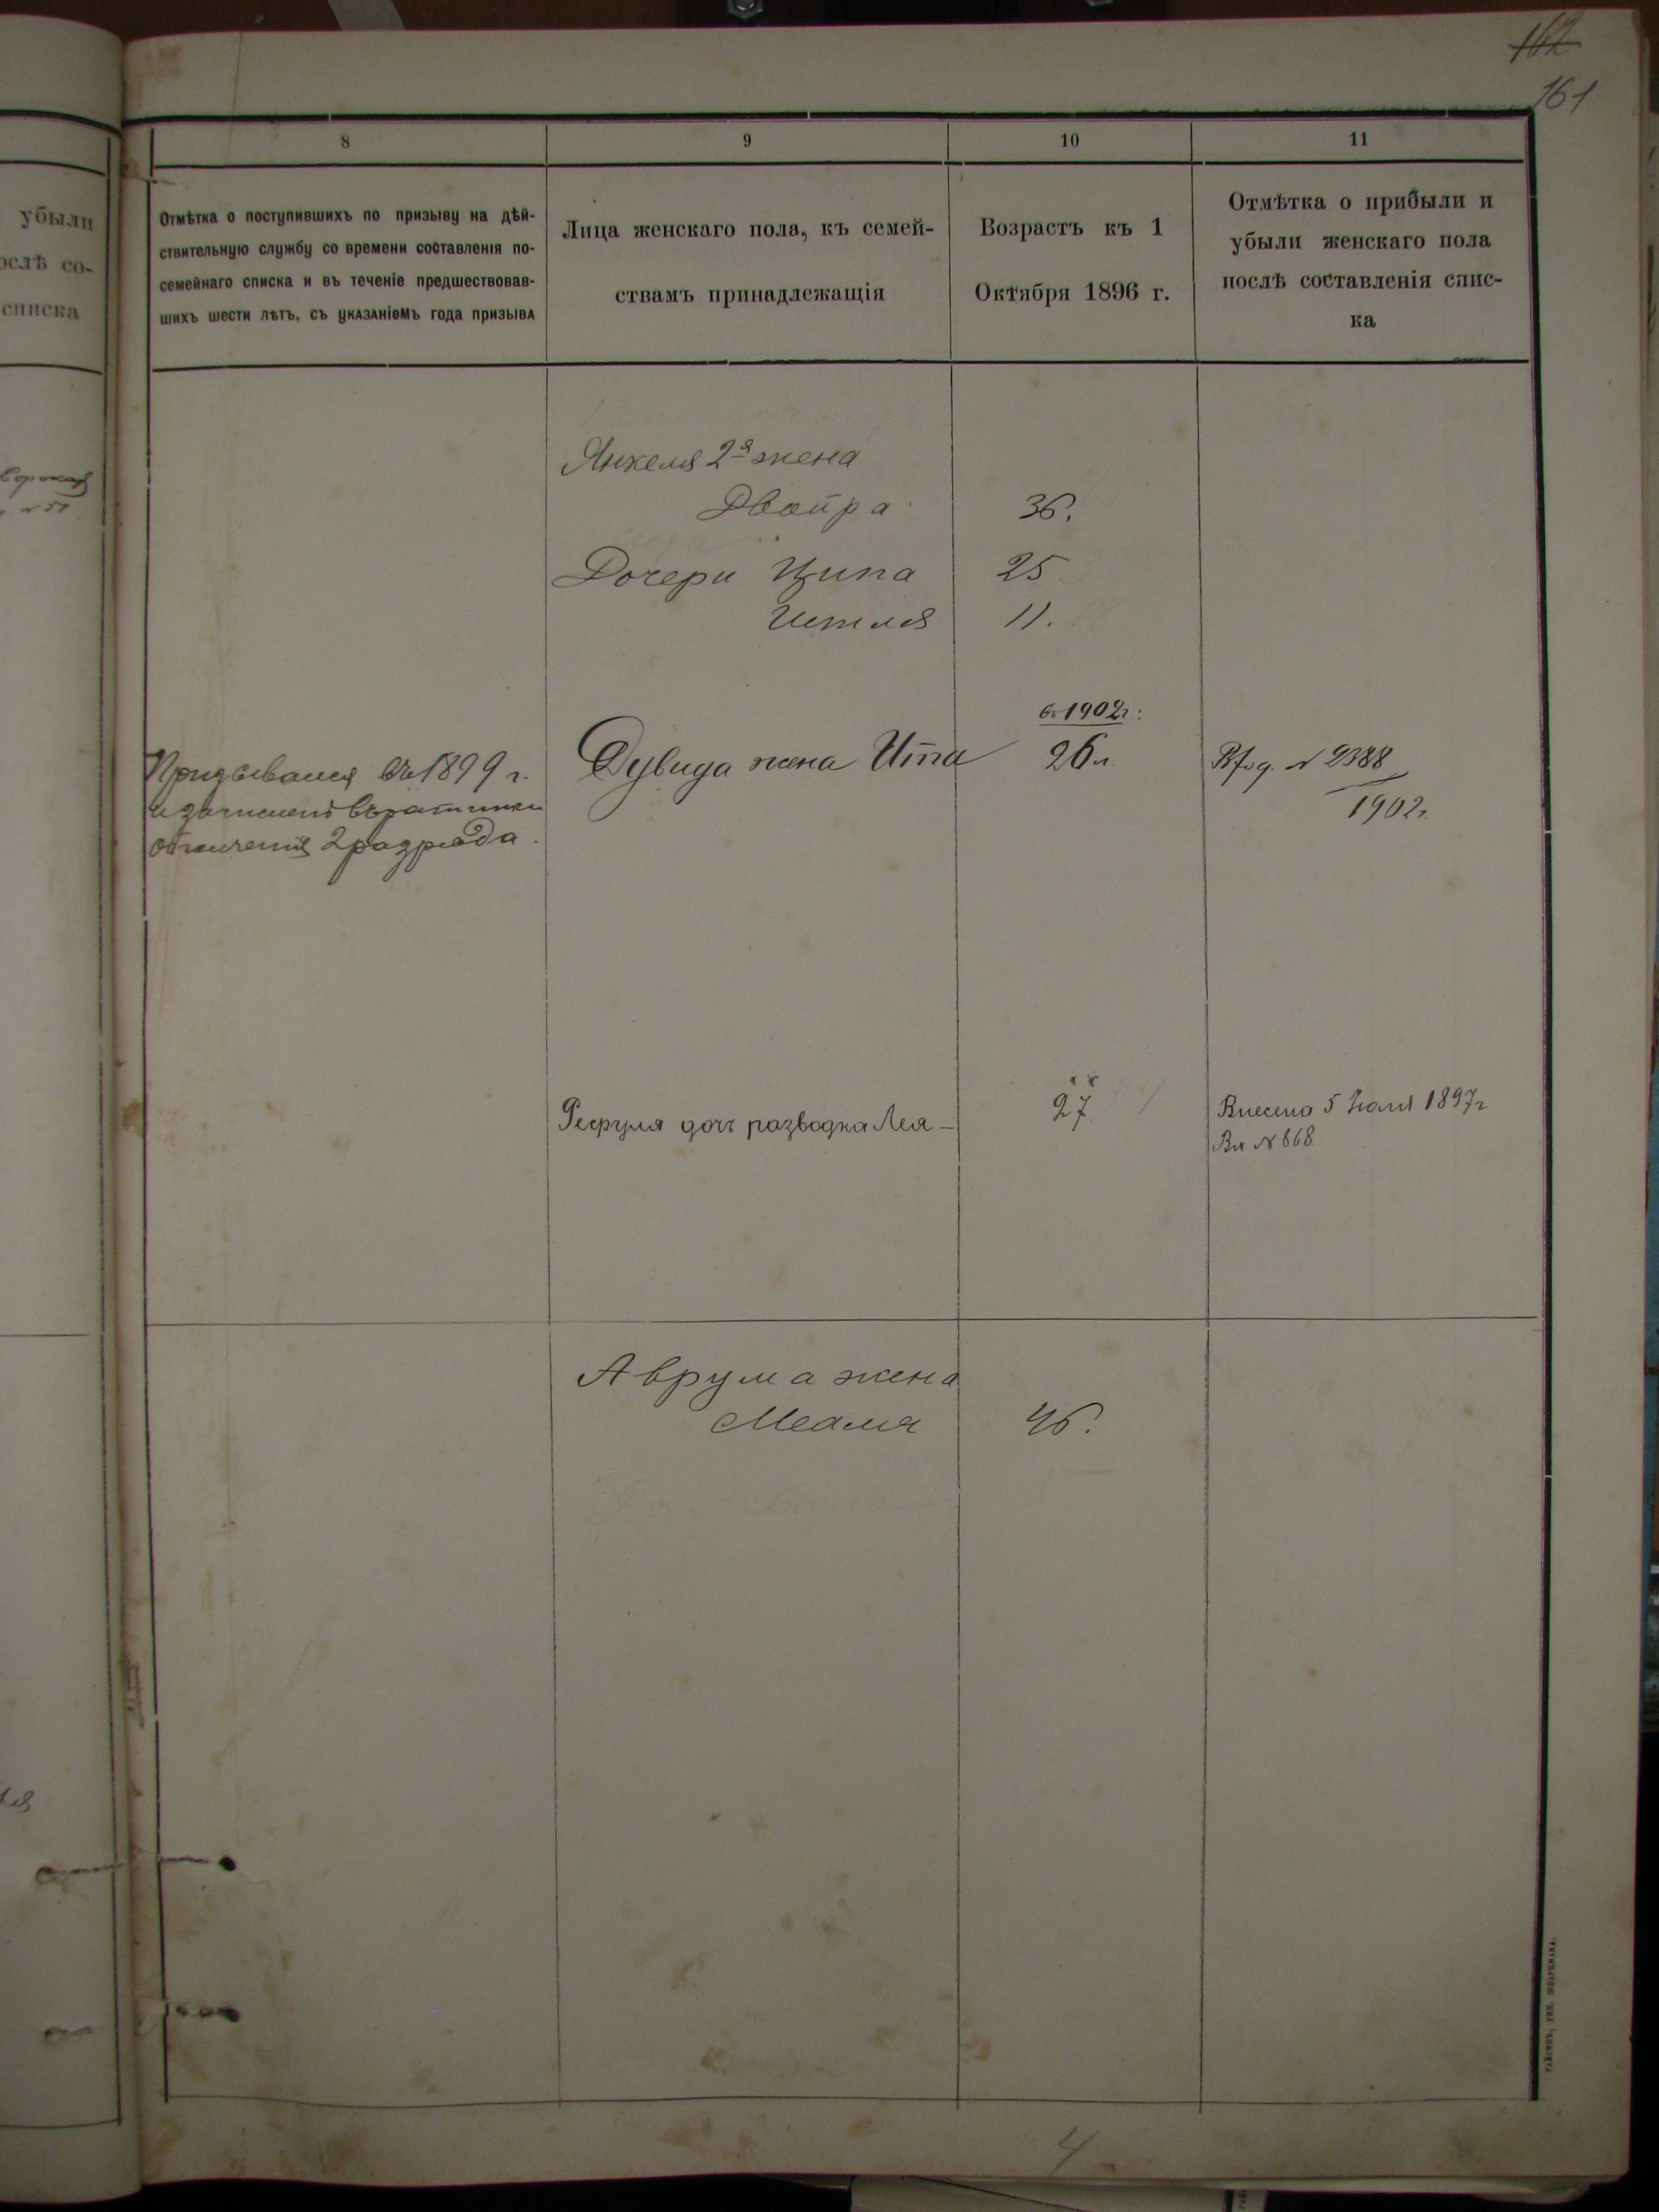 162
161
8
9
10
11
убыли
ослѣ со-
списка
Отмѣтка о поступившихъ по призыву на дѣй-
ствительную службу со времени составленія по-
семейнаго списка и въ теченіе предшествовав-
шихъ шести лѣтъ, съ указаніемъ года призыва
Лица женскаго пола, къ семей-
ствамъ принадлежащія
Возрастъ къ 1
Октября 1896 г.
Отмѣтка о прибыли и
убыли женскаго пола
послѣ составленія спис-
ка
Янкеля 2я жена
Двойра 36.
Дочери Ципа 25
Ителя 11.
въ 1902г:
Призывался въ 1899 г.
и зачисленъ въ ратники
ополченія 2 разряда.
Дувида жена Ита 26 л.
№ 2388
1902г.
Рефуля дочь разводка Лея – 27.
Внесена 5 Іюля 1897г
Вх № 668
Аврума жена
Маля 46.
4
ГАЙСИНЪ, ТИП. ШВАРЦМАНА.